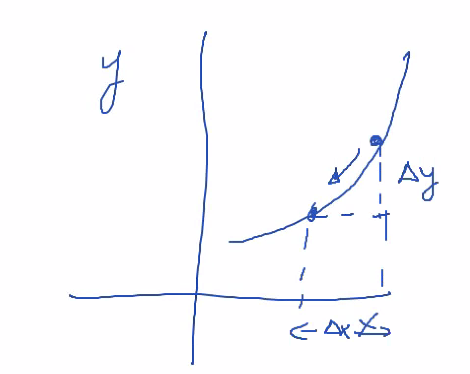 y
Δy
Δx X